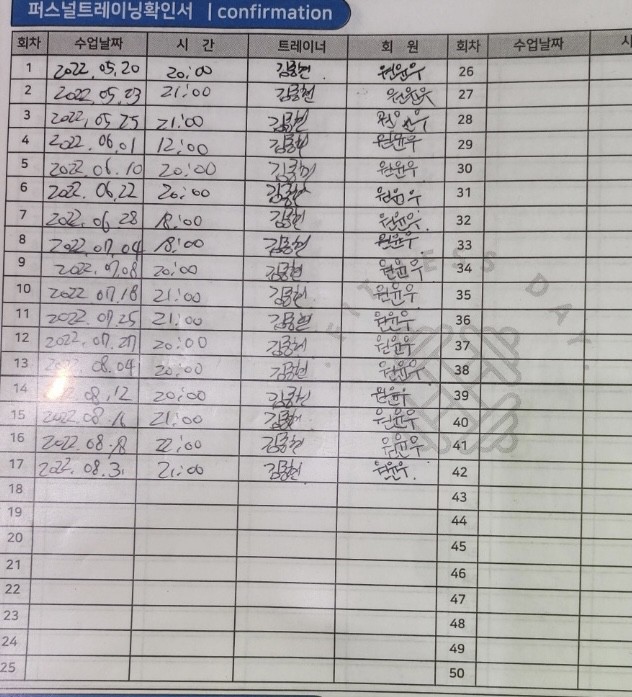 퍼스널트레이닝확인서 | confirmation
회차 수업날짜 시 간 트레이너 회 원 회차 수업날짜 시
1 2022.05.20 20:00 원윤우 26
2 2022.05.23 21:00 원윤우 27
3 2022.05.25 21:00 원윤우 28
4 2022.06.01 12:00 원윤우 29
5 2022.06.10 20:00 원윤우 30
6 2022.06.22 20:00 원윤우 31
7 2022.06.28 18:00 원윤우 32
8 2022.07.04 18:00 원윤우 33
9 2022.07.08 20:00 원윤우 34
10 2022.07.18 21:00 원윤우 35
11 2022.07.25 21:00 원윤우 36
12 2022.07.27 20:00 원윤우 37
13 2022.08.04 20:00 원윤우 38
14 08.12 20:00 원윤우 39
15 21:00 원윤우 40
16 22:00 원윤우 41
17 21:00 원윤우 42
18 43
19 44
20 45
21 46
22 47
23 48
24 49
25 50
FITNESS DAY.